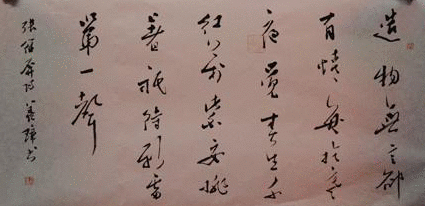 造物無言却
有情每於寒
尽覺春生千
紅万紫安排
著祇待新雷
第一聲
張維屏詩 书